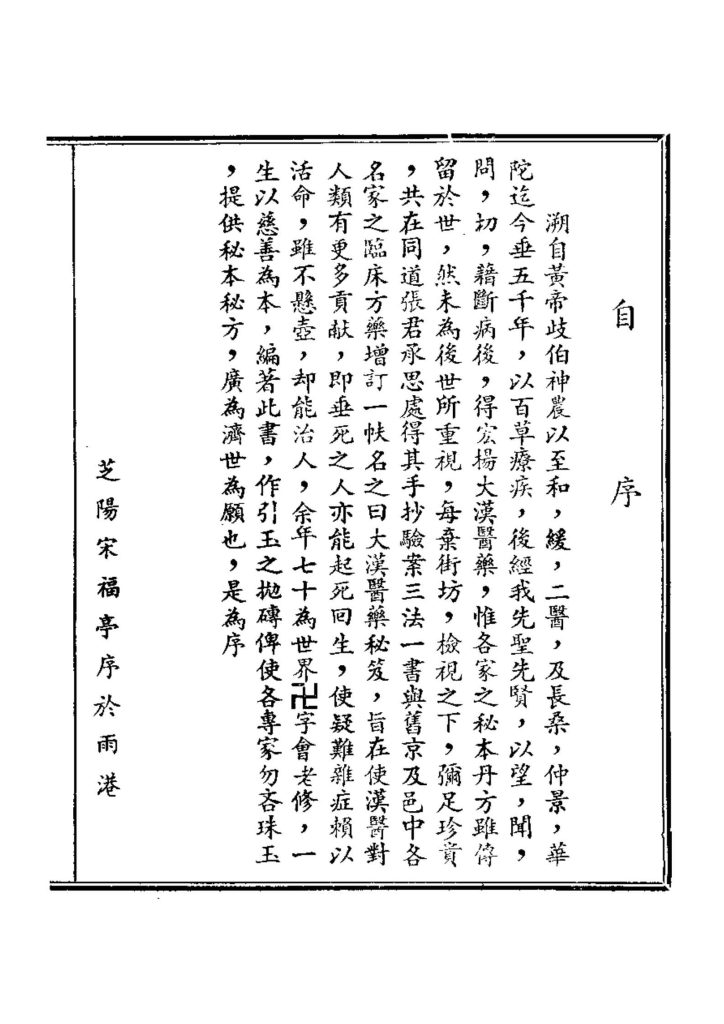 自序
溯自黃帝歧伯神農以至和，緩，二醫，及長桑，仲景，華
陀迄今垂五千年，以百草療疾，後經我先聖先賢，以望，聞，
問，切，藉斷病後，得宏揚大漢醫藥，惟各家之秘本丹方雖傳
留於世，然未為後世所重視，每棄街坊，檢視之下，彌足珍貴
，共在同道張君承思處得其手抄驗案三法一書與舊京及邑中各
名家之臨床方藥增訂一帙名之曰大漢醫藥秘笈，旨在使漢醫對
人類有更多貢献，即垂死之人亦能起死回生，使疑難雜症賴以
活命，雖不懸壺，却能治人，余年七十為世界卍字會老修，一
生以慈善為本，編著此書，作引玉之拋磚俾使各專家勿吝珠玉
，提供秘本秘方，廣為濟世為願也，是為序
芝陽宋福亭序於雨港